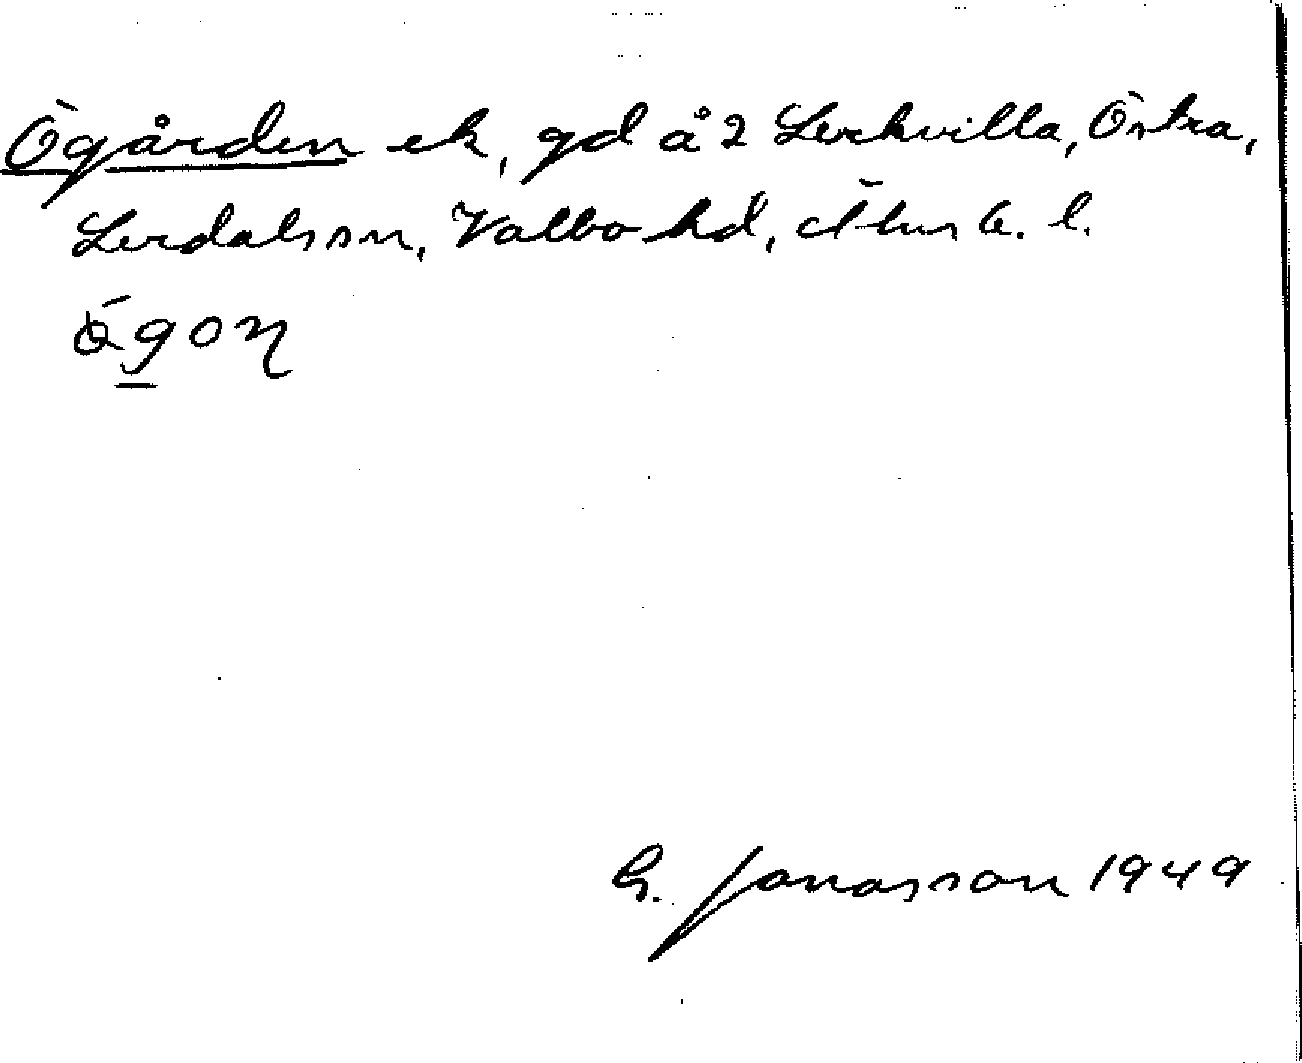 Ögården ek, gd å 2 Lerkvilla, Östra,
Lerdals sn, Valbo hd, Älvsb. l.
Ögon
G. Jonasson 1949